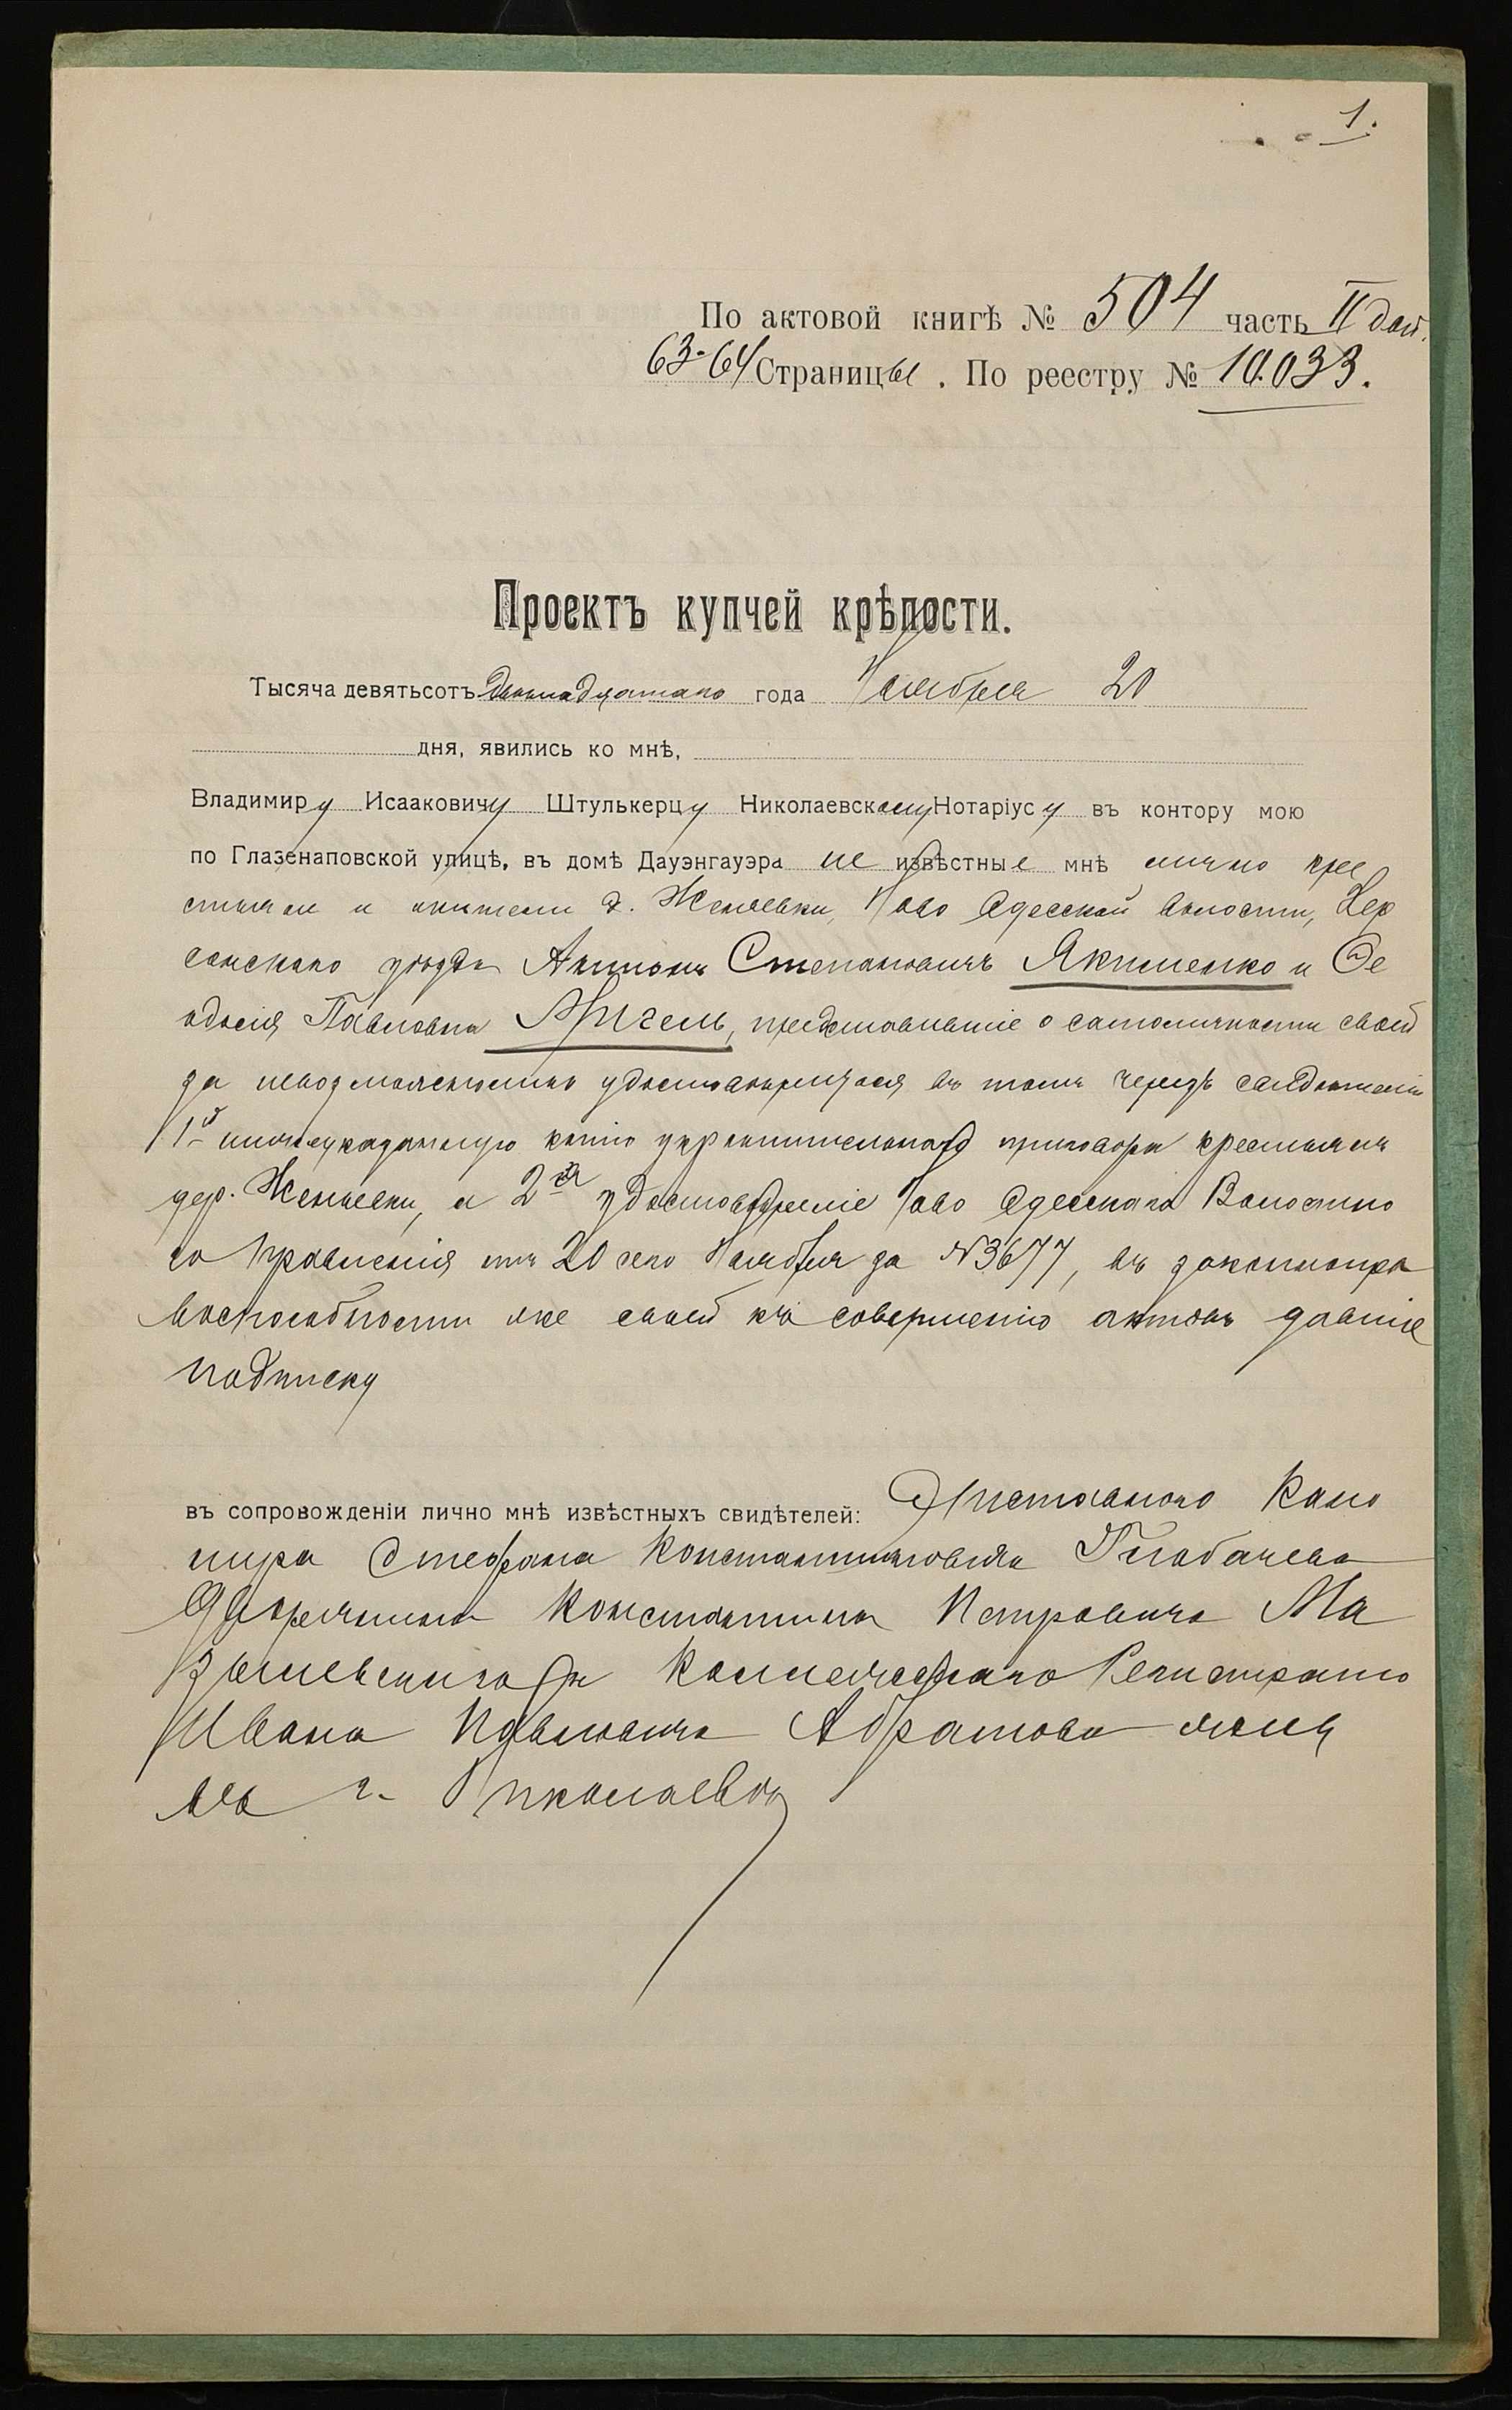 1.
По актовой книгѣ № 504 часть II
63-64 Страницы. По реестру № 10.033.
Проектъ купчей крѣпости.
Тысяча девятьсотъ двѣнадцатаго года Ноября 20
дня, явились ко мнѣ,
Владимиру Исааковичу Штулькерцу Николаевскому Нотаріусу въ контору мою
по Глазенаповской улицѣ, въ домѣ Дауэнгауэра не извѣстные мнѣ лично кре
стьяне и жители д. Ново Одесской волости, Хер
сонскаго уѣзда Антонъ Степановичъ Якименко и Ѳе
одосія Павловна представившіе о самоличности своей
за невозможностью въ томъ черезъ свидѣтелей
1й нижеуказанную копію приговора крестьянъ
дер. и 2е удостовѣреніе Ново Одесскаго Волостно
го Правленія отъ 20 сего Ноября за №3677, въ законнопра
воспособности же своей къ совершенію актовъ давшіе
подписку
въ сопровожденіи лично мнѣ извѣстныхъ свидѣтелей: Отставного Кано
нира Стефана Константиновича
Дворянина Константина Петровича Ма
и Коллежскаго Регистрато
Ивана Павловича Абрамова
въ г. Николаевѣ